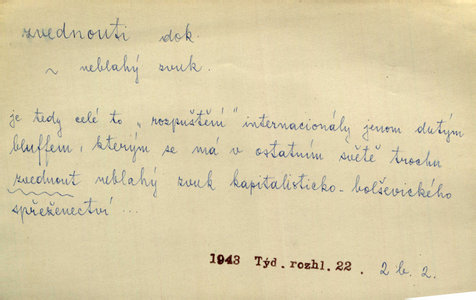 zvednouti dok.
~ neblahý zvuk.
je tedy celé to „rozpuštění" internacionály jenom dutým
bluffem, kterým se má v ostatním světě trochu
zvednout neblahý zvuk kapitalisticko-bolševického
spřeženectví ...
1943 Týd. rozhl. 22. 2 b. 2.